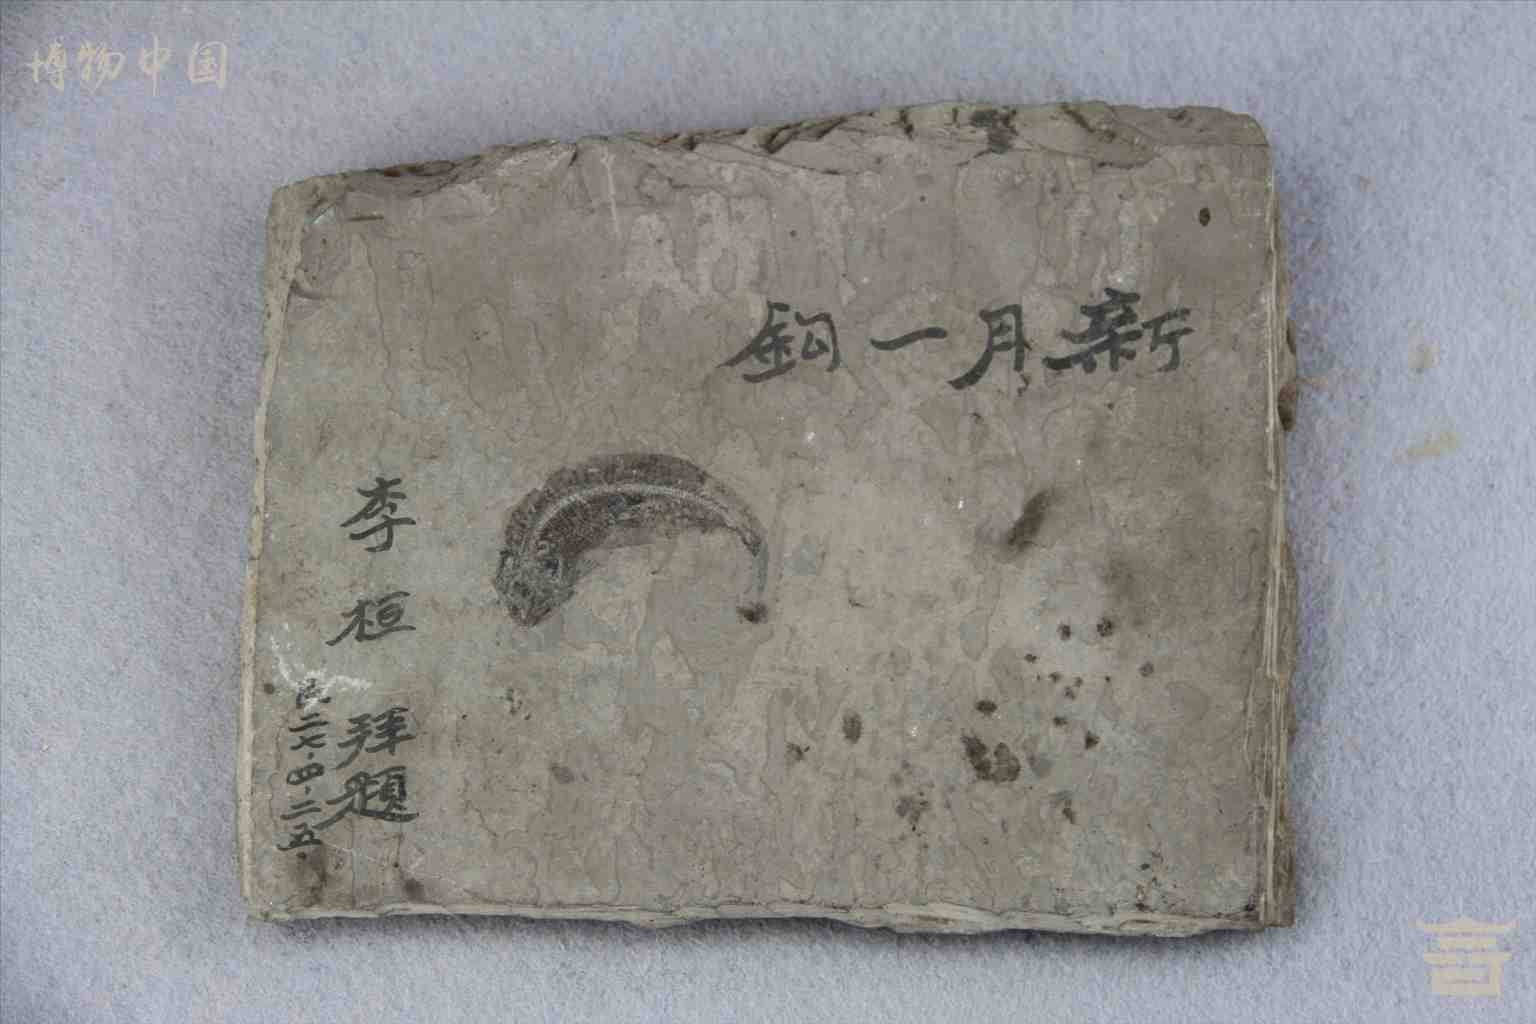 博物中国
新月一鈎
李桓拜題
民二七·四·二五·